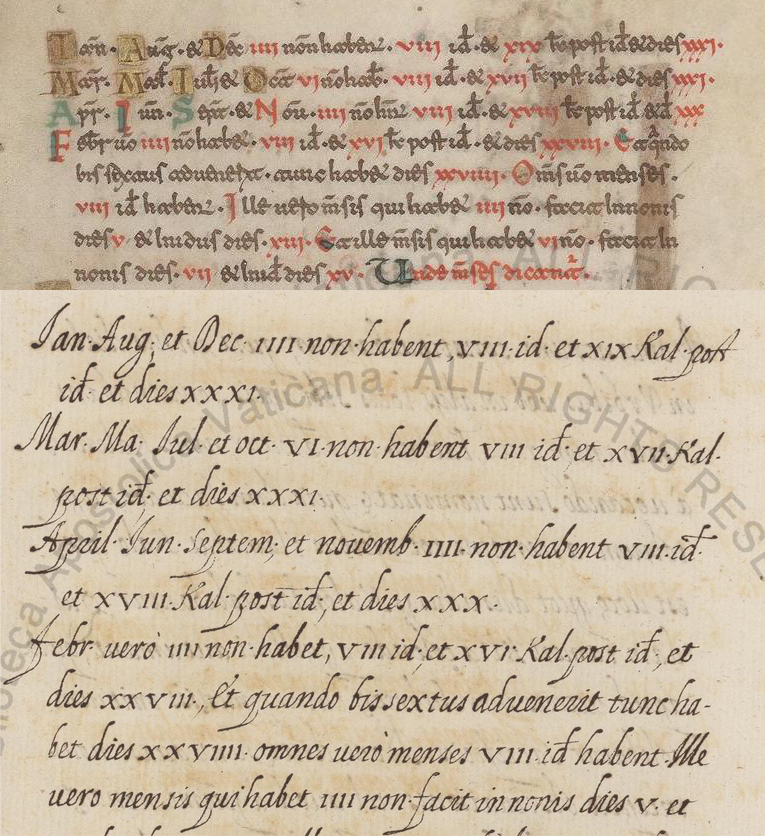 Ian· Aug· et Dec̄ iiii noń habent· viii id̄· et xix kł post id̄ et dies xxxi·
Mar̄· Mad̄· Iulī et Oct̄ vi no habent̄· viii id̄· et xvii kł post id̄· et dies xxxi·
Apr̄· Iun· Sept̄· et Nou· iiii no hn̄t viii id̄· et xviii kł post id̄ et d̄ xxx
Febr̄ uo iiii no habet· viii id̄· et xvi kł post id̄· et dies xxviii· Et qn̄do
bissextus aduenerit· tunc habet dies xxviiii· Om̄s uo menses·
viii id̄ habent· Ille uero m̄sis qui habet iiii no· facit in nonis
dies v· et in idus dies· xiii· Et ille m̄sis qui habet vi no· facit in
nonis dies· vii et in id̄ dies xv· Unde m̄ses dicant̄·
Ian· Aug, et Dec· IIII non·habent, VIII·id· et XIX Kal·post
id̄· et dies XXXI·
Mar· Ma· Iul· et oct· VI·non·habent VIII id̄· et XVII·Kal·
post id̄· et dies XXXI·
April· Iun· Septem, et novemb· IIII·non·habent VIII·id̄·
et XVIII·Kal·post id̄, et dies XXX·
Febr· verò IIII non·habet, VIII id, et XVI·Kal·post id̄, et
dies XXVIII·, Et quando bissextus advenerit tunc ha-
bet dies XXVIIII· omnes verò menses VIII·id̄ habent·Ille
vero mensis qui habet IIII non·facit in nonis dies V· et
Biblioteca Apostolica Vaticana ALL RIGHTS